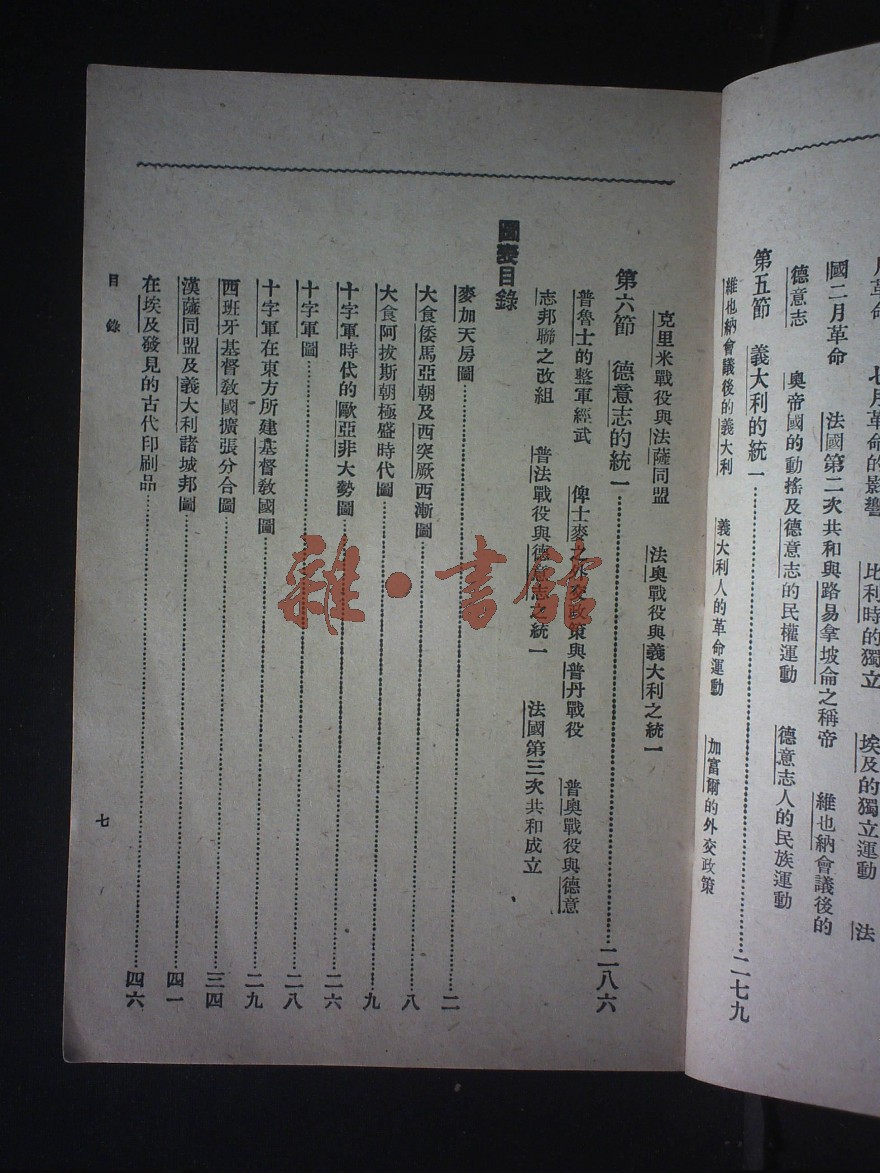 國二月革命　法國第二次共和與路易拿坡侖之稱帝　維也納會議後的
德意志　奧帝國的動搖及德意志的民權運動　德意志人的民族運動
第五節　義大利的統一……二七九
維也納會議後的義大利　義大利人的革命運動　加富爾的外交政策
克里米戰役與法薩同盟　法奧戰役與義大利之統一
第六節　德意志的統一……二八六
普魯士的整軍經武　俾士麥之外交政策與普丹戰役　普奧戰役與德意
志邦聯之改組　普法戰役與德意志之統一　法國第三次共和成立
圖表目錄
麥加天房圖……二
大食倭馬亞朝及西突厥西漸圖……八
大食阿拔斯朝極盛時代圖……九
十字軍時代的歐亞非大勢圖……二六
十字軍圖……二八
十字軍在東方所建基督教國圖……二九
西班牙基督教國擴張分合圖……三四
漢薩同盟及義大利諸城邦圖……四一
在埃及發見的古代印刷品……四六
目錄
七
雜·書館